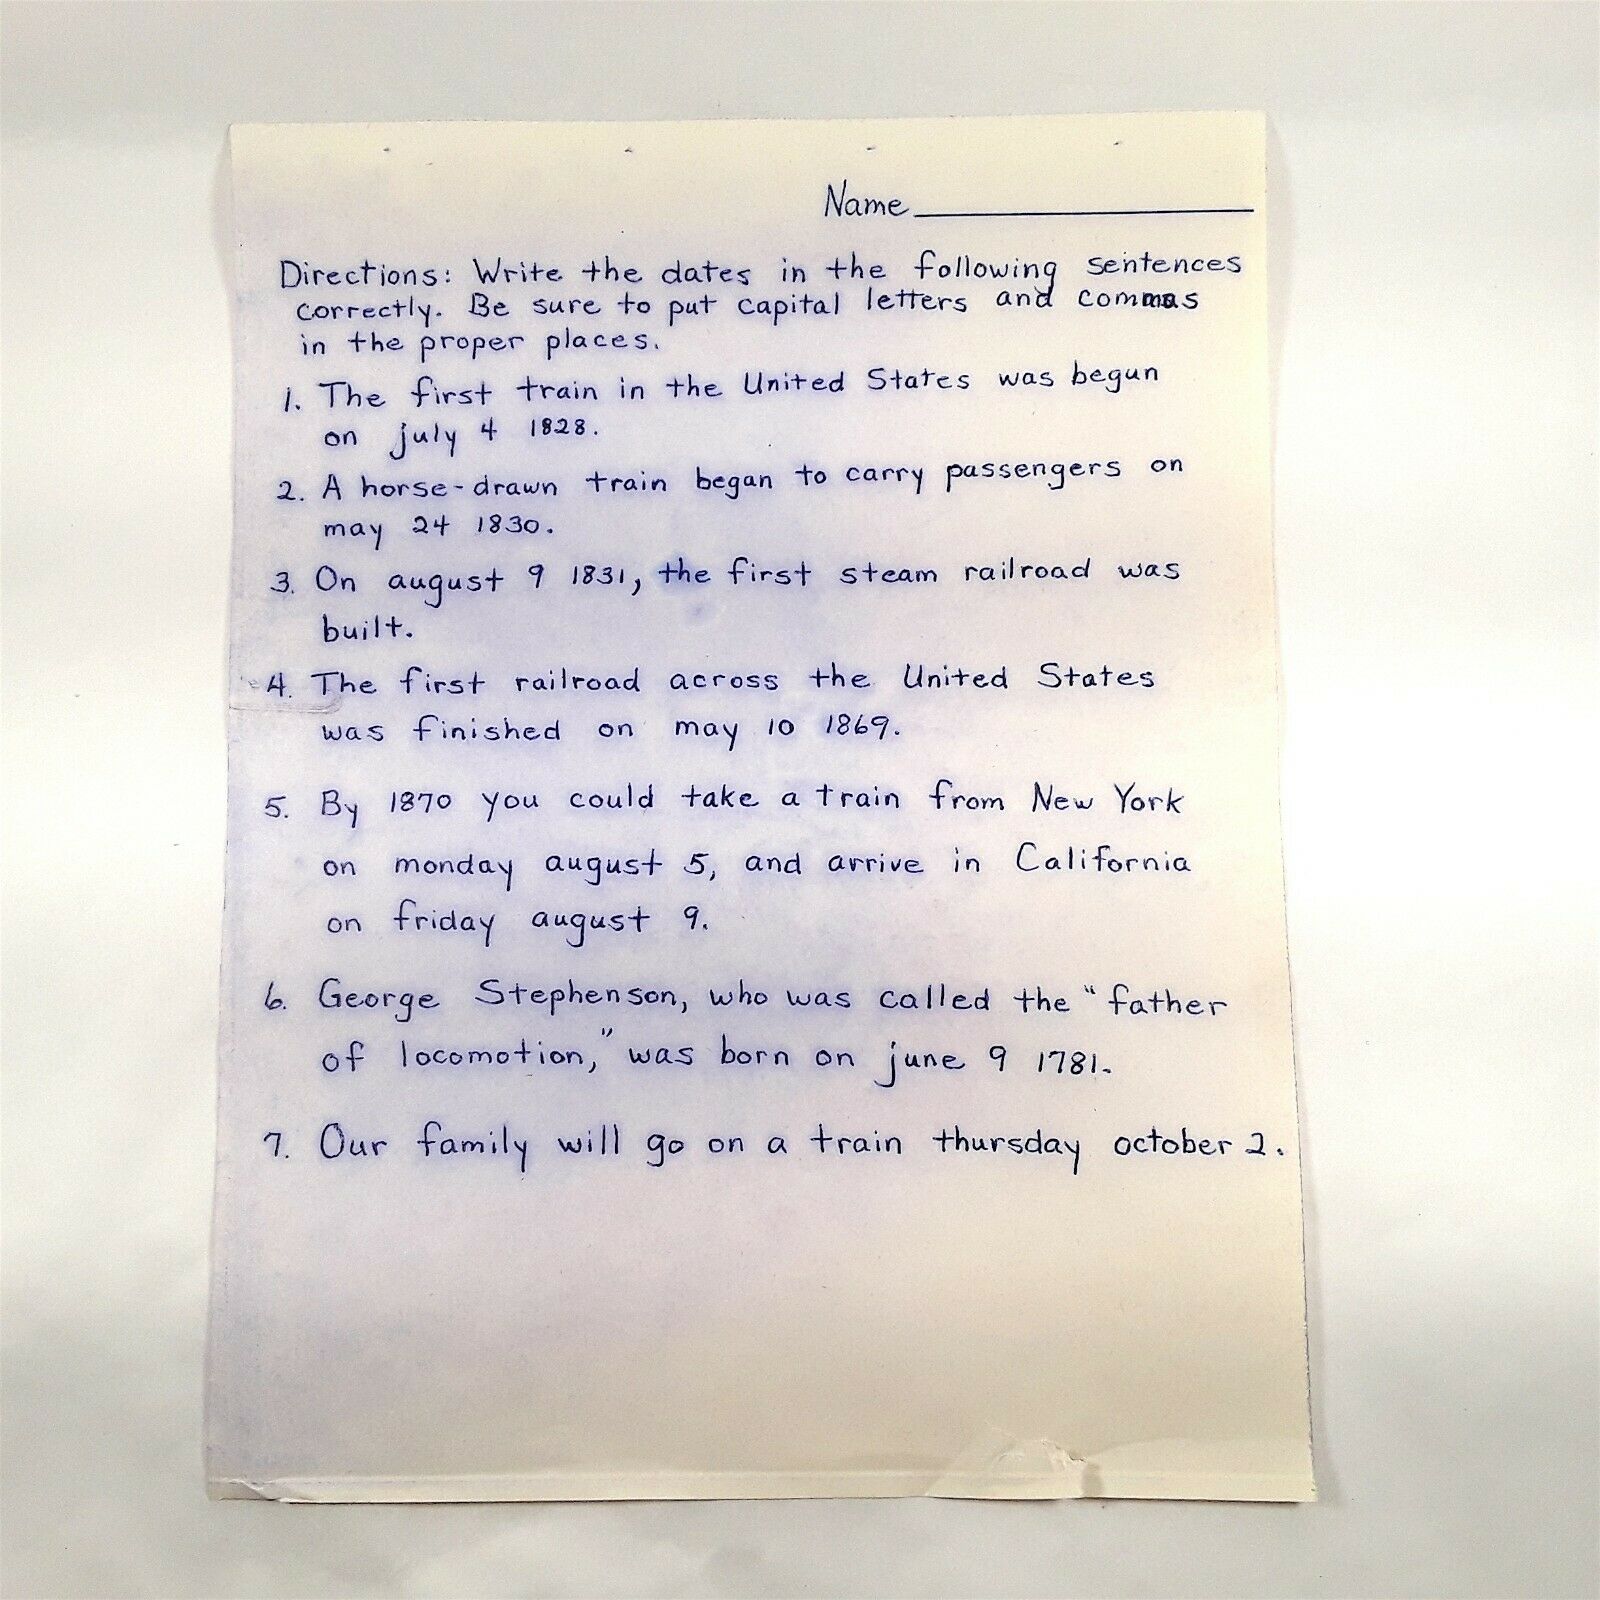 Name
Directions: Write the dates in the following sentences
correctly. Be sure to put capital letters and commas
in the proper places.
1. The first train in the United States was begun
on july 4 1828.
2. A horse-drawn train began to carry passengers on
may 24 1830.
3. On august 9 1831, the first steam railroad was
built.
4. The first railroad across the United States
was finished on may 10 1869.
5. By 1870 you could take a train from New York
on monday august 5, and arrive in California
on friday august 9.
6. George Stephenson, who was called the "father
of locomotion," was born on june 9 1781.
7. Our family will go on a train thursday october 2.